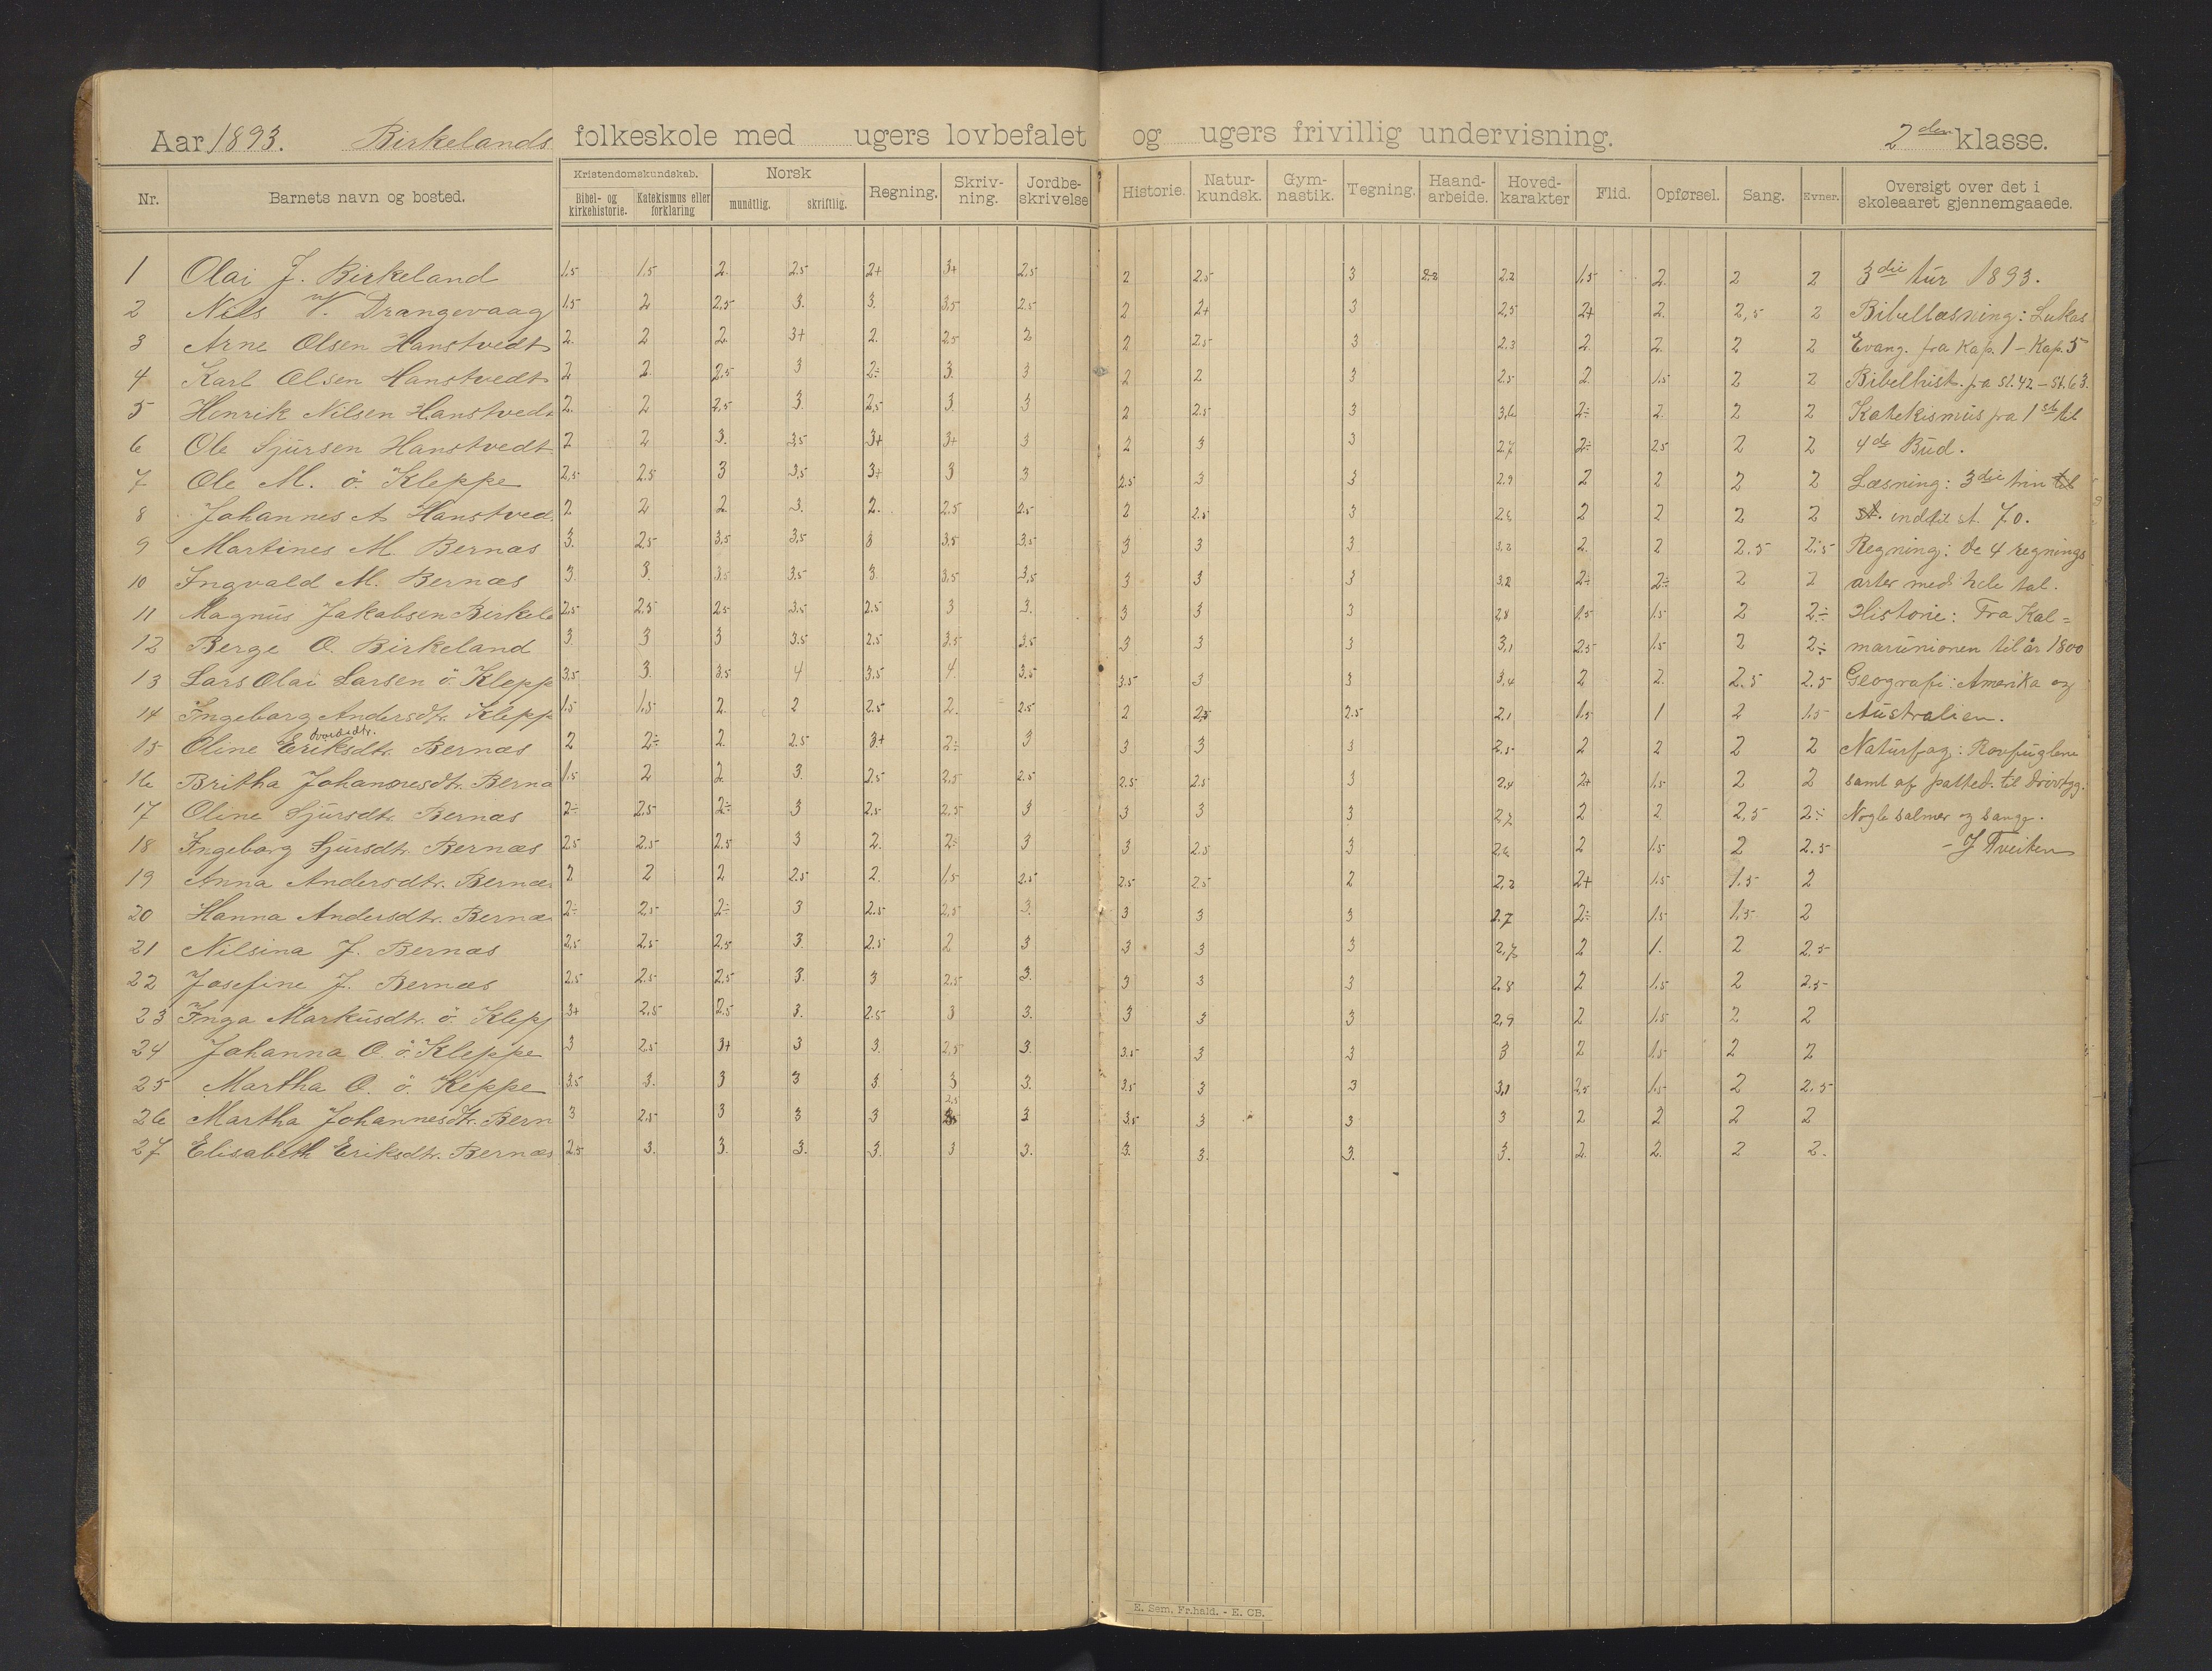 Aar 1893. Birkelands folkeskole med ugers lovbefalet og ugers frivillig undervisning. 2den klasse.
Nr. Barnets navn og bosted. Kristendomskundskab. Bibel- og kirkehistorie. Katekismus eller forklaring Norsk mundtlig. skriftlig. Regning. Skriv-ning. Jordbe-skrivelse Historie. Natur-kundsk. Gym-nastik. Tegning. Haand-arbeide. Hoved-karakter Flid. Opførsel. Sang. Evner. Oversigt over det i skoleaaret gjennemgaaede.
1 Olai J. Birkeland 1.5 1.5 2. 2.5 2+ 3+ 2.5 2 2.5 3 2.2 2.2 1.5 2. 2 2 3die tur 1893.
2 Nils V. Drangevaag 1.5 2 2.5 3. 3. 3.5 2.5 2 2+ 3 2,5 2+ 2. 2,5 2 Bibellæsning: Lukas
3 Arne Olsen Hanstvedt 2. 2 2. 3+ 2. 2.5 2 2 2.5 3 2.3 2. 2. 2 2 Evang. fra Kap. 1 - Kap. 5
4 Karl Olsen Hanstvedt 2 2. 2.5 3 2÷ 3. 3 2 2 3 2.5 2. 1.5 2 2 Bibelhist. fra st. 42 - st. 63.
5 Henrik Nilsen Hanstvedt 2. 2 2,5 3. 2,5 3. 3 2 2.5 3 3,6 2÷ 2. 2 2 Katekismus fra 1ste til
6 Ole Sjursen Hanstvedt 2 2 3. 3.5 3+ 3+ 3 2 3 3 2.7 2÷ 2.5 2 2 4de Bud.
7 Ole M. ö. Kleppe 2,5 2.5 3 3,5 3+ 3 3 2.5 3 3 2.9 2 2 2 2 Læsning: 3die trin til
8 Johannes A Hanstved. 2 2 2. 3. 2. 2.5 2.5 2 2.5 3 2.6 2 2 2 2 st. indtil st. 70.
9 Martines M. Bernæs 3. 2.5 3,5 3,5 3 3,5 3,5 3 3 3 3,2 2. 2 2.5 2.5 Regning: de 4 regnings
10 Ingvald M. Bernæs 3. 3. 3.5 3.5 3. 3,5 3,5 3 3 3 3,2 2÷ 2÷ 2 2 arter med hele tal.
11 Magnus Jakobsen Birkela 2,5 2.5 2.5 3.5 2.5 3 3. 3 3 3 2,8 1.5 1.5 2 2÷ Historie: Fra Kal=
12 Berge O. Birkeland 3 3 3 3.5 2.5 3.5 3.5 3 3 3 3,1 2.5 1.5 2 2÷ marunionen til år 1800
13 Lars Olai Larsen ö. Klepp 3,5 3. 3.5 4 3,5 4. 3.5 3.5 3 3 3,4 2 2. 2.5 2.5 Geografi: Amerika og
14 Ingeborg Andersdtr. Klepp 1.5 1.5 2. 2 2.5 2. 2.5 2 2.5 2.5 2.1 1.5 1 2 1.5 Australien.
15 Oline Eriksdtr. Bernæs 2 2÷ 2. 2.5 3+ 2÷ 3 3 3 3 2,5 2 2 2 2 Naturfag: Rovfuglene
16 Britha Johannesdtr. Berna 1.5 2 2 3. 2.5 2,5 2.5 2.5 2.5 3 2,4 2+ 1.5 2 2 samt af patted. til drøvtyg.
17 Oline Sjursdtr. Bernæs 2÷ 2.5 2÷ 3 2,5 2,5 3 3 3 3 2,7 2 2 2,5 2÷ Nogle salmer og sange.
18 Ingeborg Sjursdtr. Bernæs 2.5 2.5 2.5 3 2. 2÷ 3 3 2.5 3 2,6 2 1.5 2 2.5 - J Tveiten
19 Anna Andersdtr. Bernæs 2 2 2 2.5 2. 1,5 2.5 2.5 2.5 2 2,2 2+ 1.5 1.5 2
20 Hanna Andersdtr. Bernæ 2÷ 2.5 2÷ 3 2.5 2,5 3. 3 3 3 2.7 2÷ 1.5 1.5 2
21 Nilsina J. Bernæs 2,5 2,5 2,5 3. 2.5 2 3 3 3 3 2,7 2 1. 2 2.5
22 Josefine J. Bernæs 2.5 2.5 2.5 3. 3 2,5 3. 3 3 3 2.8 2 1.5 2 2.5
23 Inga Markusdtr. ö. Klepp 3+ 2,5 2.5 3. 2.5 3 3. 3 3 3 2,9 2 1.5 2 2
24 Johanna O. ö. Kleppe 3 2.5 3+ 3 3. 2,5 3. 3.5 3 3 3 2 1.5 2 2
25 Martha O. ö. Keppe 3.5 3. 3 3 3. 3 3. 3.5 3 3 3,1 2,5 1.5 2 2.5
26 Martha Johannesdtr. Bern 3 2.5 3 3 3 2,5 3 3.5 3 3 3 2 2 2 2
27 Elisabeth Eriksdtr. Bernæs 2.5 3. 3. 3. 3. 3 3. 3. 3. 3. 3. 2. 2. 2 2.
E. Sem. Fr.hald. - E. CB.